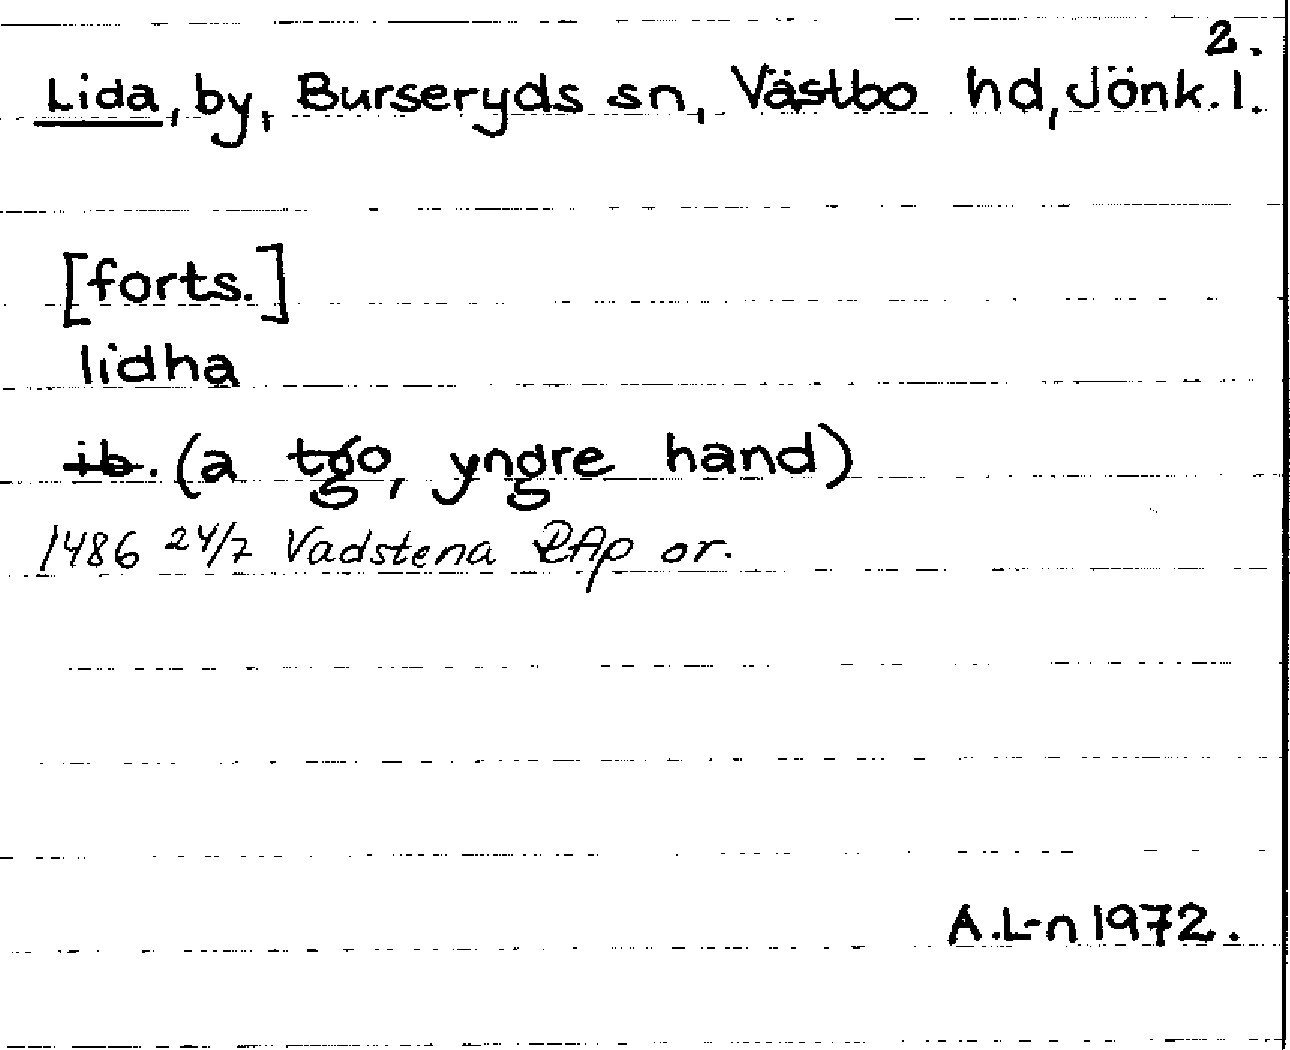 2.
Lida, by, Burseryds sn, Västbo hd, Jönk. l.
[forts.]
lidha
ib. (a tgo, yngre hand)
1486 24/7 Vadstena RAp or.
A.L-n 1972.